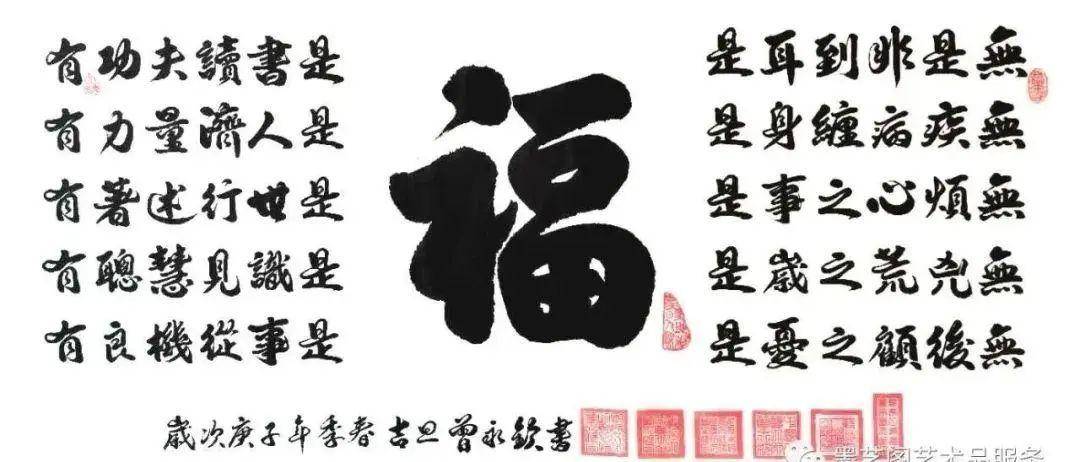 有功夫讀書是
有力量濟人是
有著述行世是
有聰慧見識是
有良機從事是
福
無是非到耳是
無疾病纏身是
無煩心之事是
無凶荒之歲是
無後顧之憂是
歲次庚子年季春吉旦曾永欽書
墨艺阁艺术品服务